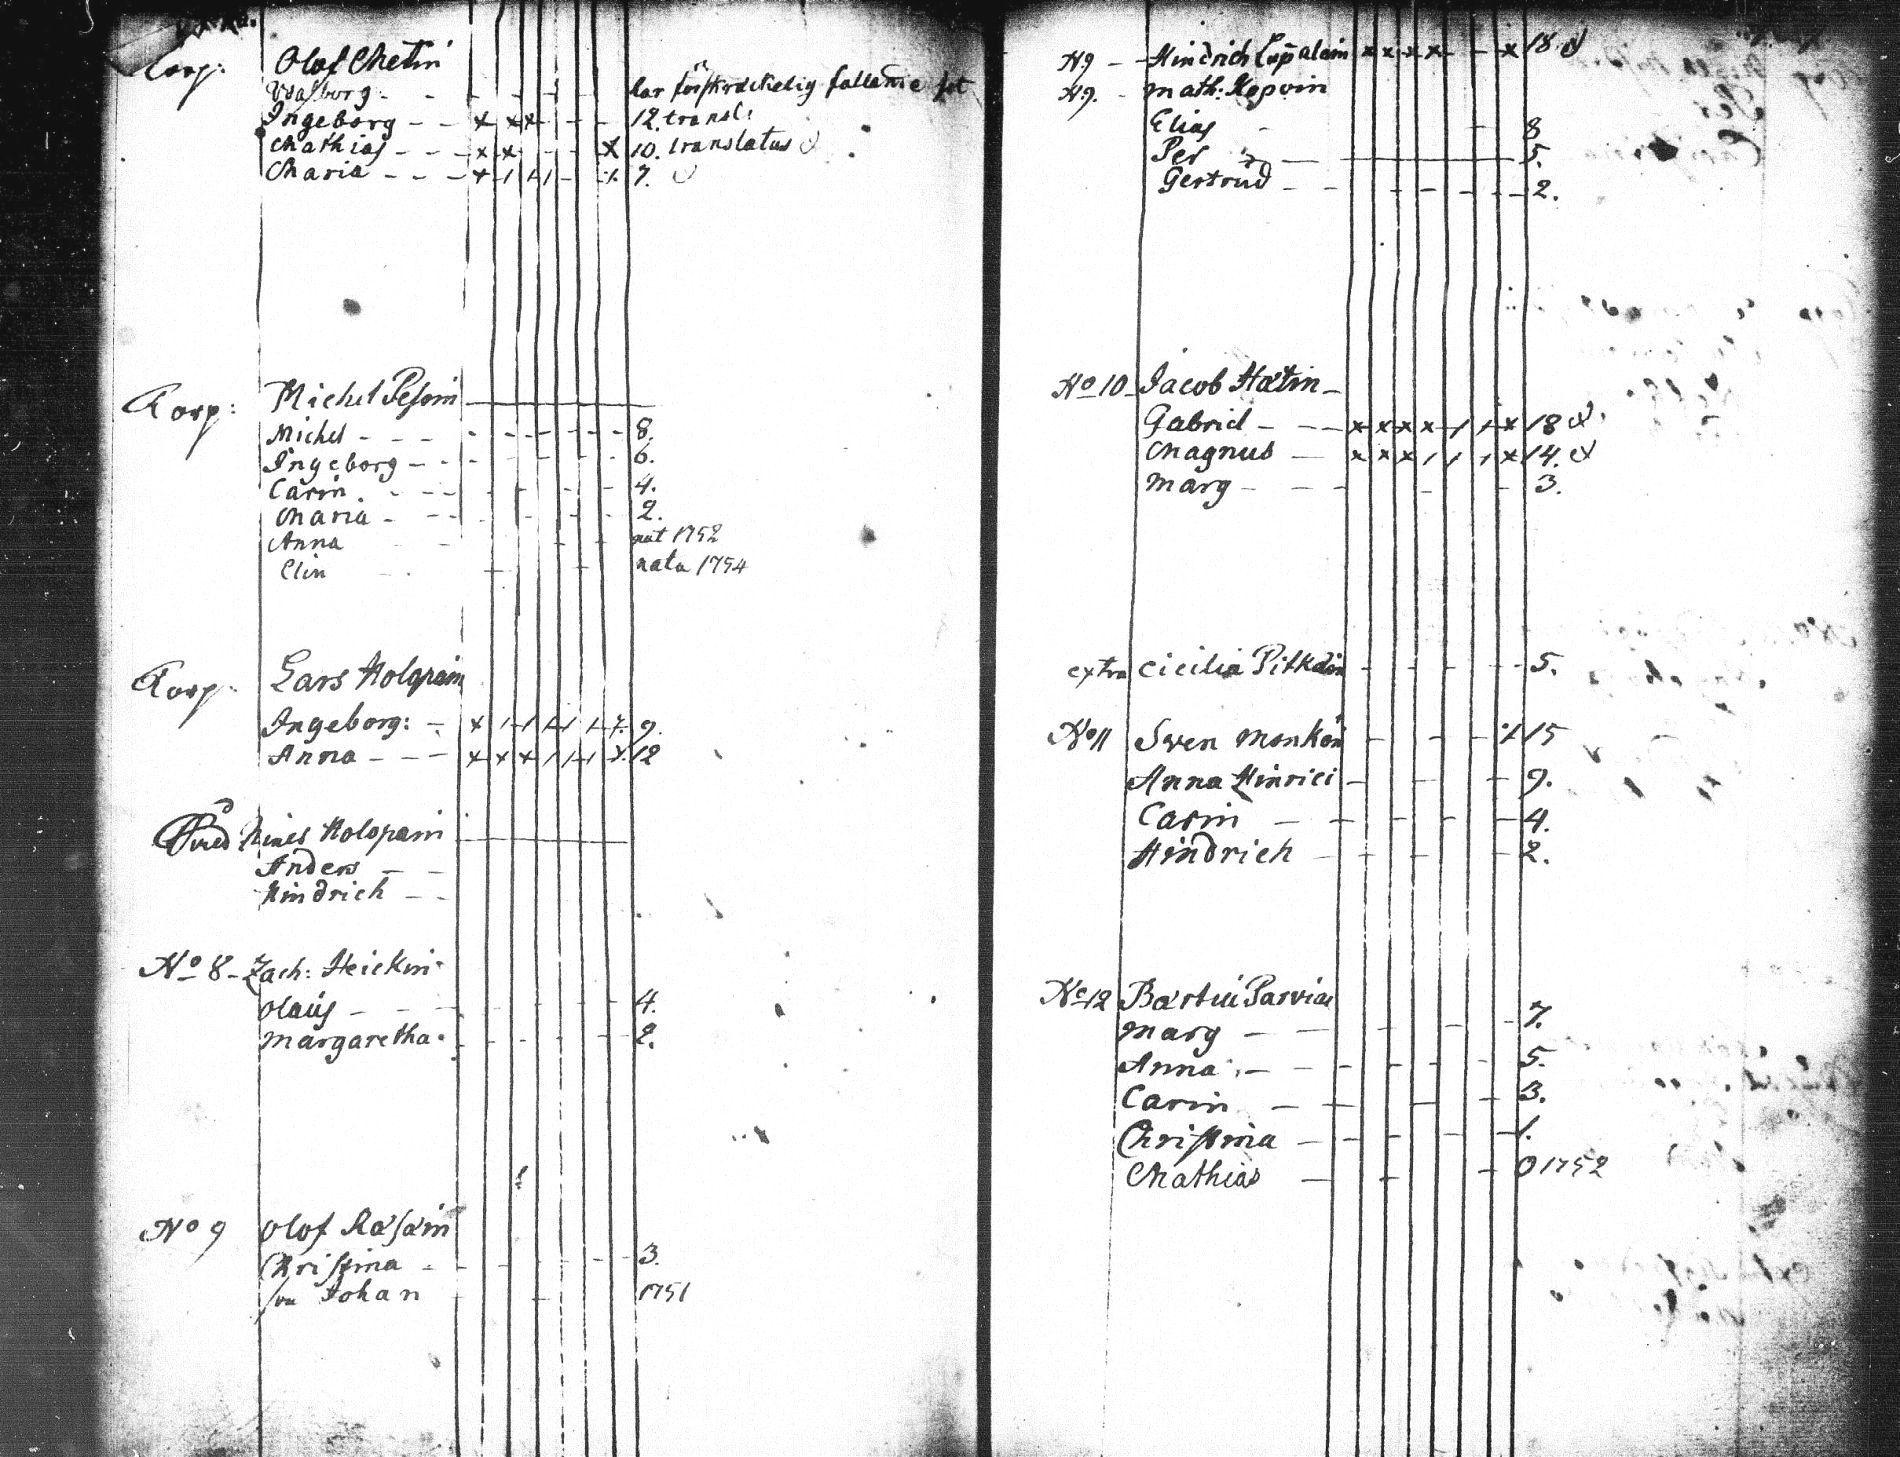 Korp: Olof Metin
Walborg - - - - har förskräckelig fallande sot
Ingeborg - - x x x - - - 12. transl:
Mathias - - - x x - - x 10. translatus
Maria - - - x 7.
Korp: Michel Pesoin
Michel - - - 8.
Ingeborg - - 6.
Carin - - - 4.
Maria - - - 2.
Anna nat 1752
Elin nata 1754
Korp: Lars Holopain
Ingeborg: - x 9.
Anna - - - x x x 12
Hinric Holopain
Anders - -
Hindrich - -
No 8 - Zach: Heickin
Olaus - - - 4.
Margaretha - 2.
No 9 Olof Räsäin
Christina - - 3.
Johan 1751
N9 - Hindrich x x x x - - x 18
N9. - Math: Kopoin
Elias - 8
Per - 5.
Gertrud - - 2.
No 10 - Jacob Hätin -
Gabriel - - - x x x x / / x 18
Magnus - x x x / / / x 14.
Marg - - - 3.
extra Cicilia Pitkäin - - - 5.
No 11 Swen Monkoin - - - 15
Anna Hinrici - - - 9.
Carin - - - 4.
Hindrich - - - 2.
No 12 Bartui Parviai
Marg - - - 7.
Anna - - - 5.
Carin - - - 3.
Christina - - - 1.
Mathias - - - 0 1752